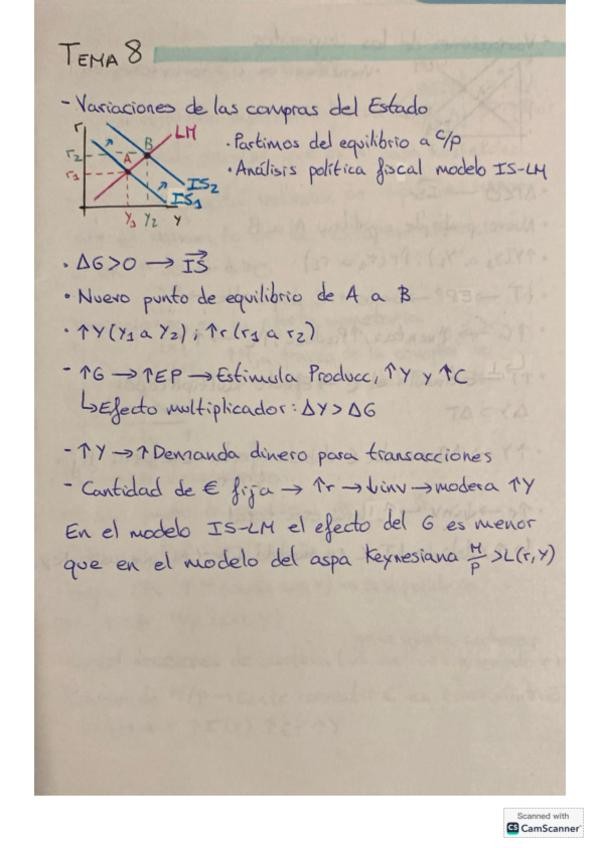 TEMA 8
- Variaciones de las compras del Estado
r
LM
B
A
r2
r1
IS2
IS1
Y1 Y2 Y
· Partimos del equilibrio a c/p
· Análisis política fiscal modelo IS-LM
· ΔG>0 → IS→
· Nuevo punto de equilibrio de A a B
· ↑Y (Y1 a Y2) ; ↑r (r1 a r2)
- ↑G → ↑EP → Estimula Producc, ↑Y y ↑C
↳ Efecto multiplicador: ΔY > ΔG
- ↑Y → ↑ Demanda dinero para transacciones
- Cantidad de € fija → ↑r → ↓inv → modera ↑Y
En el modelo IS-LM el efecto del G es menor
que en el modelo del aspa Keynesiana M/P > L(r,Y)
Scanned with
CS CamScanner